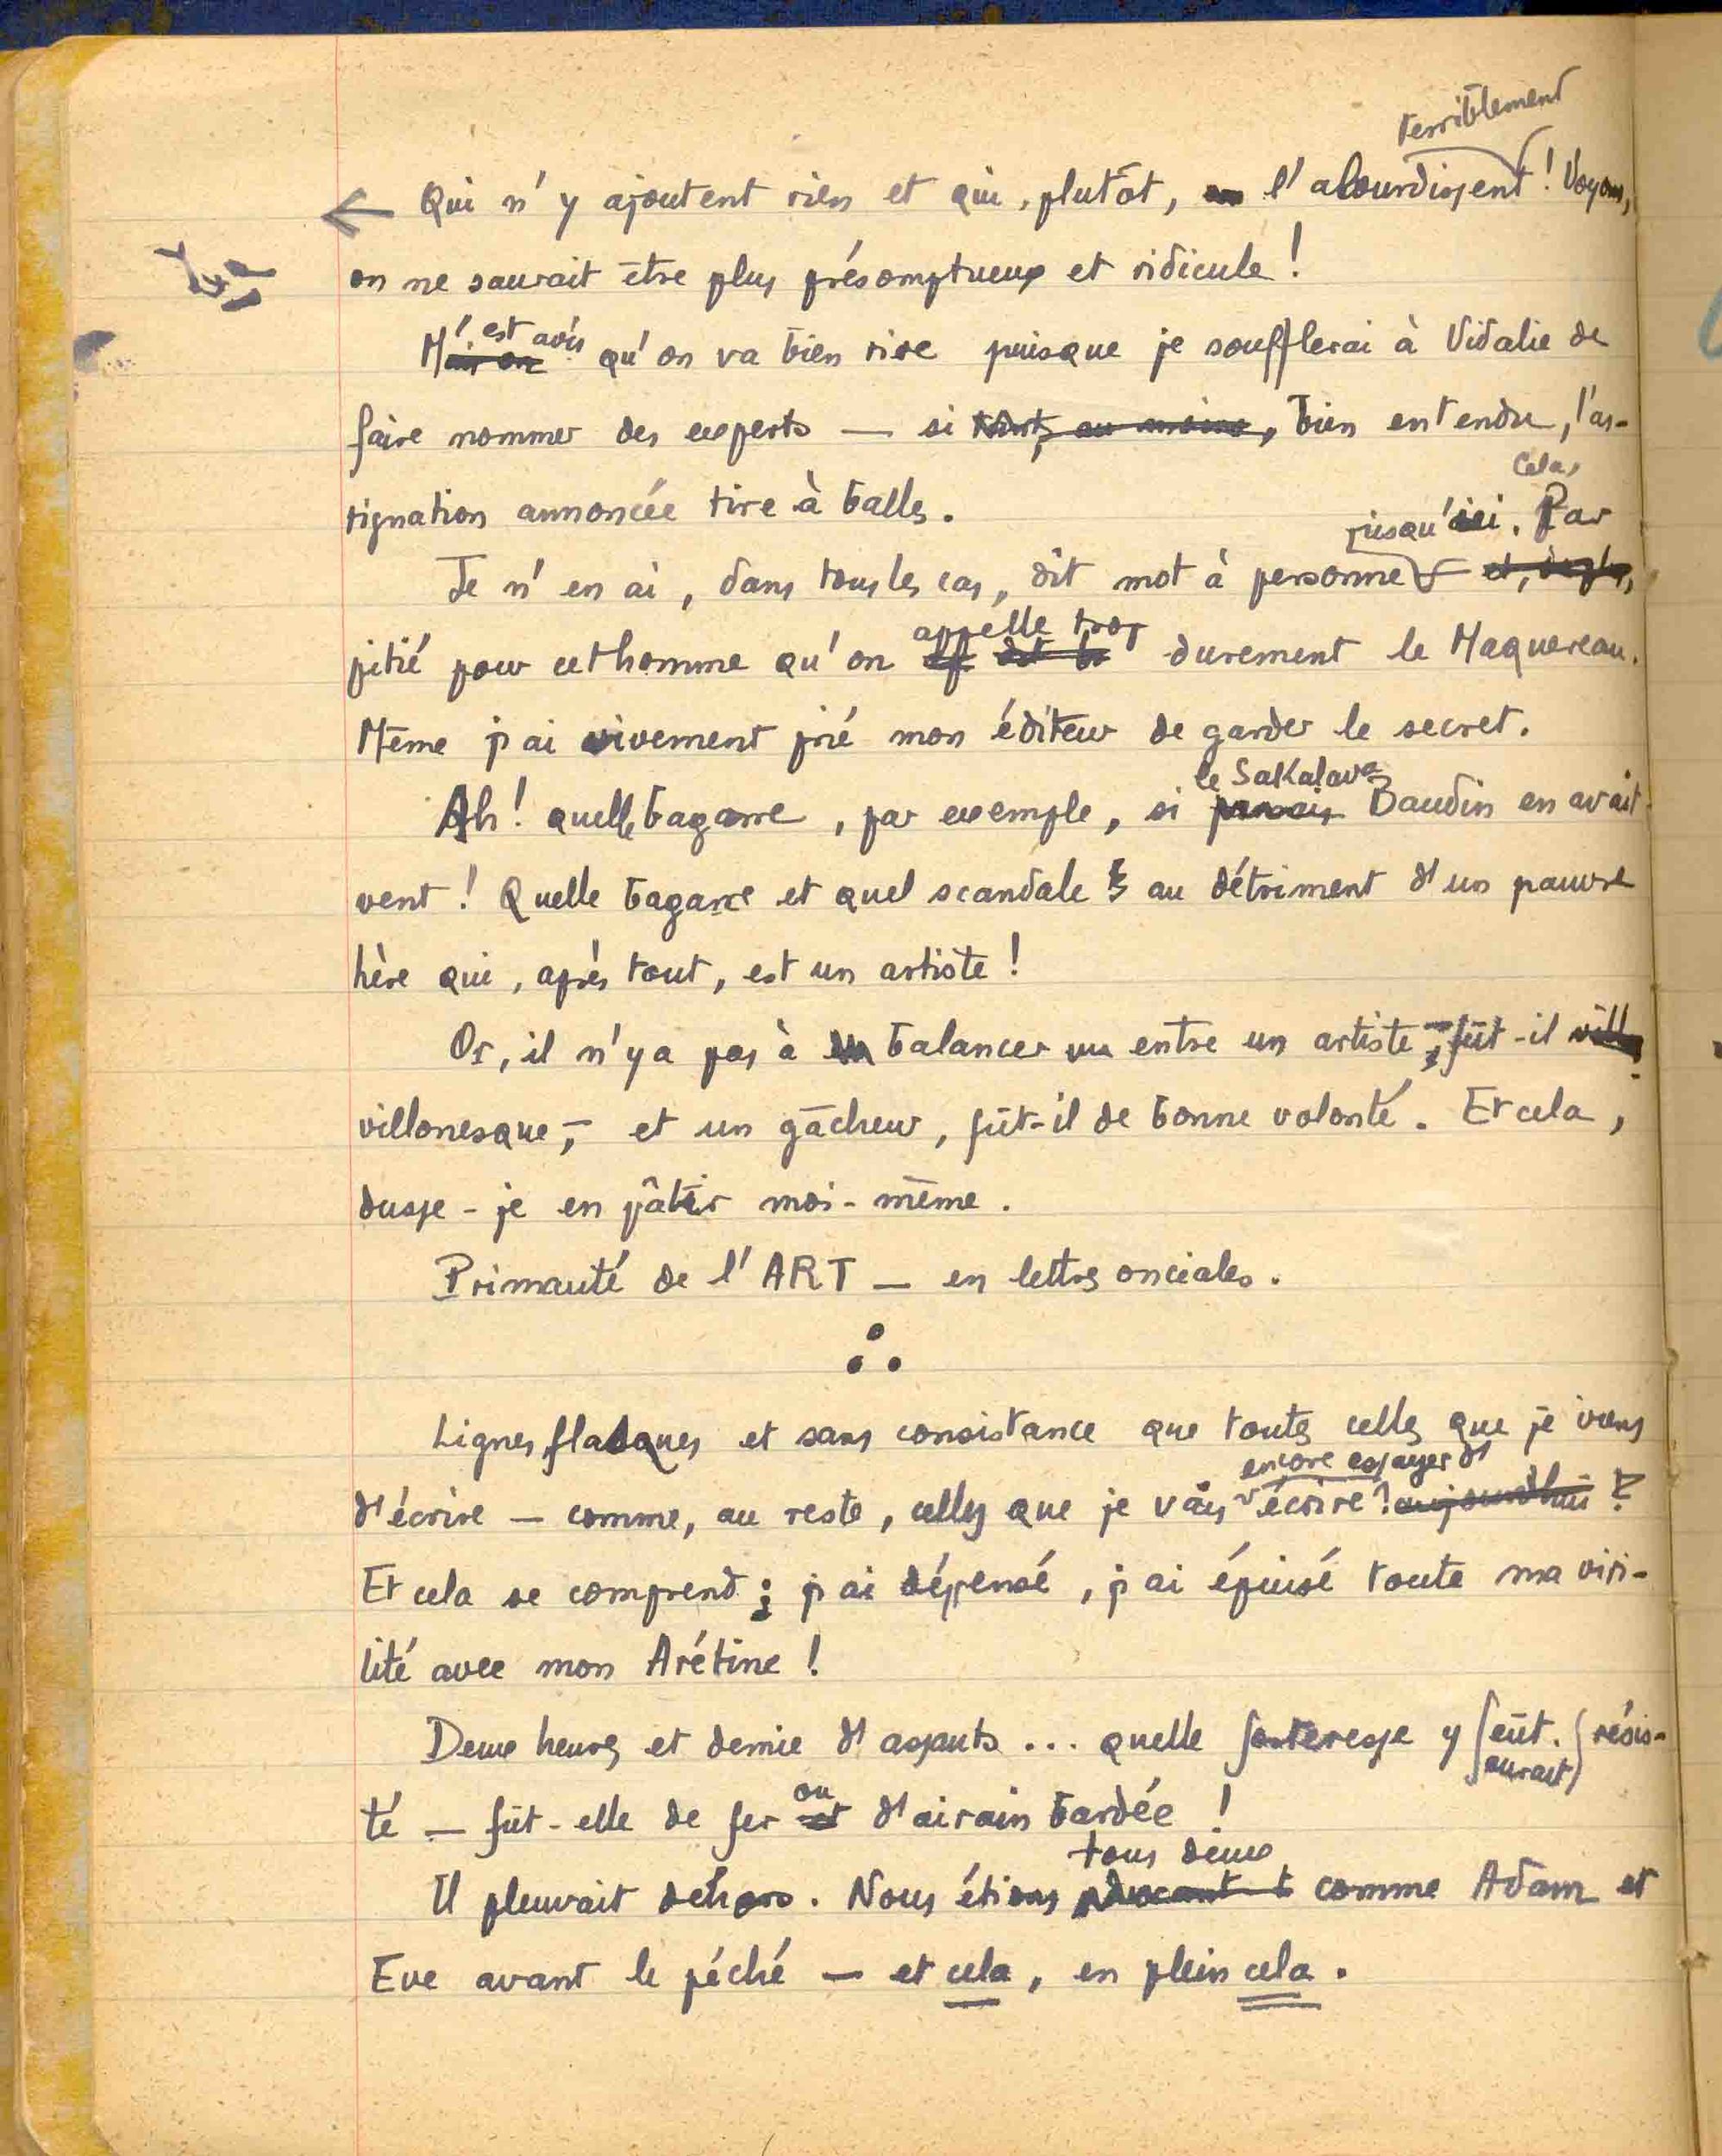 terriblement
← Qui n'y ajoutent rien et qui, plutôt, l'alourdissent ! Voyons,
on ne saurait être plus présomptueux et ridicule !
M'est avis qu'on va bien rire puisque je soufflerai à Vidalie de
faire nommer des experts — si bien entendu, l'as-
signation annoncée tire à balles.
jusqu'ici. Cela, Par
Je n'en ai, dans tous les cas, dit mot à personne
appelle trop
pitié pour cet homme qu'on durement le Maquereau.
Même j'ai vivement prié mon éditeur de garder le secret.
le Sakalave
Ah ! quelle bagarre, par exemple, si Baudin en avait
vent ! Quelle bagarre et quel scandale au détriment d'un pauvre
hère qui, après tout, est un artiste !
Or, il n'y a pas à balancer entre un artiste, — fût-il
villonesque, — et un gâcheur, fût-il de bonne volonté. Et cela,
dussé-je en pâtir moi-même.
Primauté de l'ART — en lettres onciales.
∴
Lignes flasques et sans consistance que toutes celles que je viens
encore essayer d'
d'écrire — comme, au reste, celles que je vais écrire ! aujourd'hui !
Et cela se comprend ; j'ai dépensé, j'ai épuisé toute ma viri-
lité avec mon Arétine !
Deux heures et demie d'assauts ... quelle forteresse y eût résis-
aurait
ou
té — fût-elle de fer et d'airain bardée !
tous deux
Il pleuvait dehors. Nous étions comme Adam et
Eve avant le péché — et cela, en plein cela.